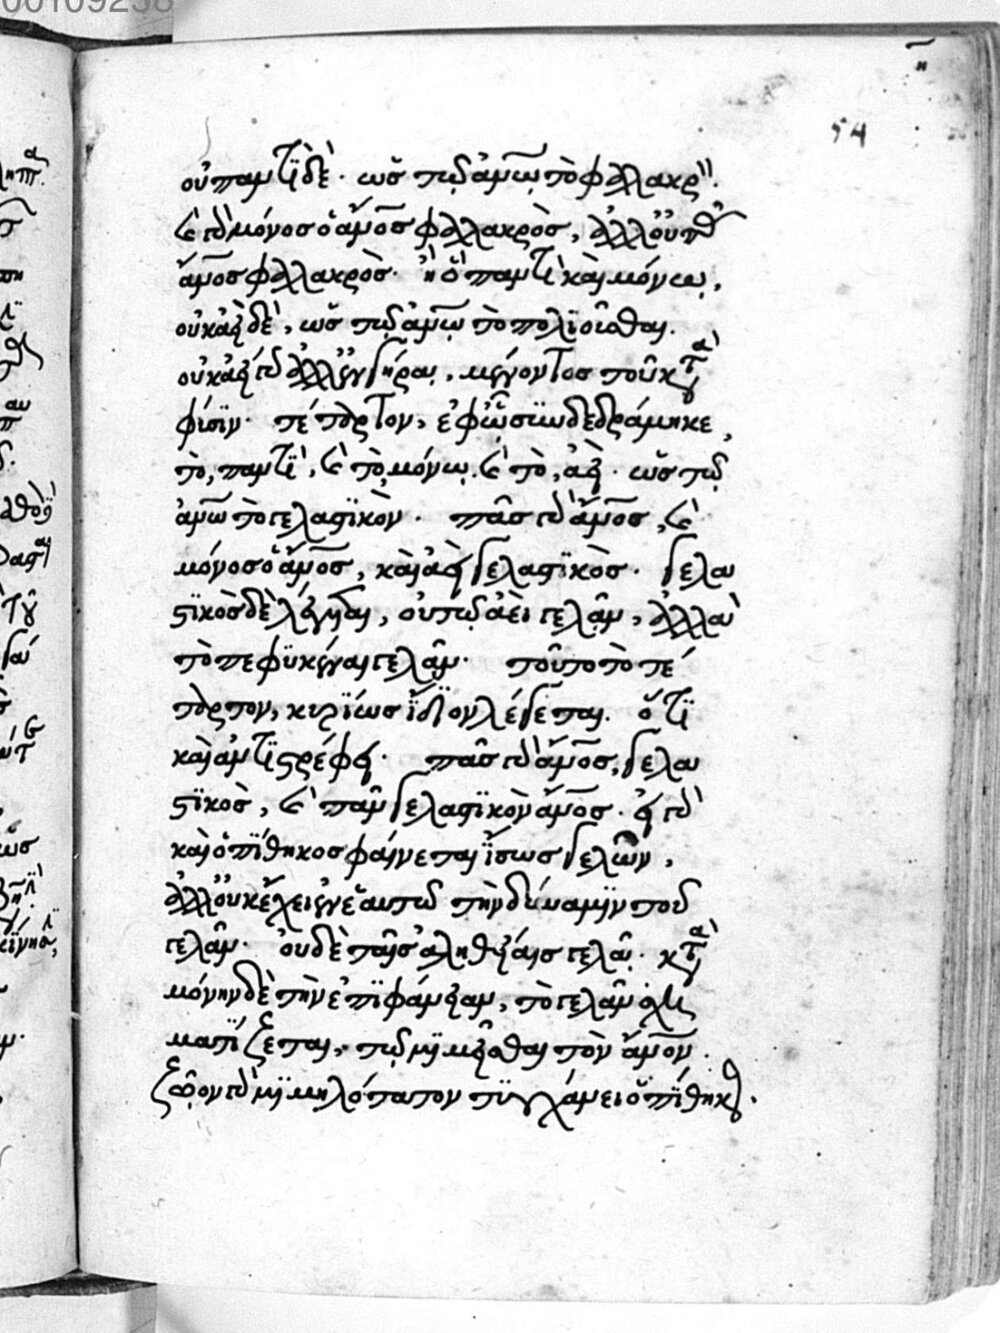 00109238
η
54
οὐ παντὶ δέ· ὡς τῷ ἀνῳ τὸ φαλλακρ.
καὶ γὰρ μόνος ὁ ἄνος φαλλακρὸς, ἀλλ' οὐ πᾶς
ἄνος φαλλακρὸς· ἢ ὃ παντὶ καὶ μόνῳ,
οὐκ ἀεὶ δὲ, ὡς τῷ ἀνῳ τὸ πολιοῦσθαι.
οὐκ ἀεὶ γὰρ ἀλλ' ἐν γήρᾳ, μένοντος τοῦ κατὰ
φύσιν· τέταρτον, ἐφ' ᾧ συνδεδράμηκε
τὸ, παντὶ, καὶ τὸ, μόνῳ. καὶ τὸ, ἀεὶ· ὡς τῷ
ἀνῳ τὸ γελαστικὸν· πᾶς γὰρ ἄνος, καὶ
μόνος ὁ ἄνος, καὶ ἀεὶ γελαστικὸς· γελα
στικὸς δὲ λέγεται, οὐ τῷ ἀεὶ γελᾶν, ἀλλὰ
τὸ πεφυκέναι γελᾶν· τοῦτο τὸ τέ
ταρτον, κυρίως ἴδιον λέγεται. ὅτι
καὶ ἀντιστρέφει· πᾶς γὰρ ἄνος, γελα
στικὸς, καὶ πᾶν γελαστικὸν ἄνος· εἰ γὰρ
καὶ ὁ πίθηκος φαίνεται ἴσως γελῶν,
ἀλλ' οὐκ ἔχει ἐν ἑαυτῷ τὴν δύναμιν τοῦ
γελᾶν· οὐδὲ ταῖς ἀληθείαις γελᾷ· κατὰ
μόνην δὲ τὴν ἐπιφάνειαν, τὸ γελᾶν σχη
ματίζεται, τῷ μιμεῖσθαι τὸν ἄνον.
ζῷον γὰρ μιμηλότατον τυγχάνει ὁ πίθηκος.